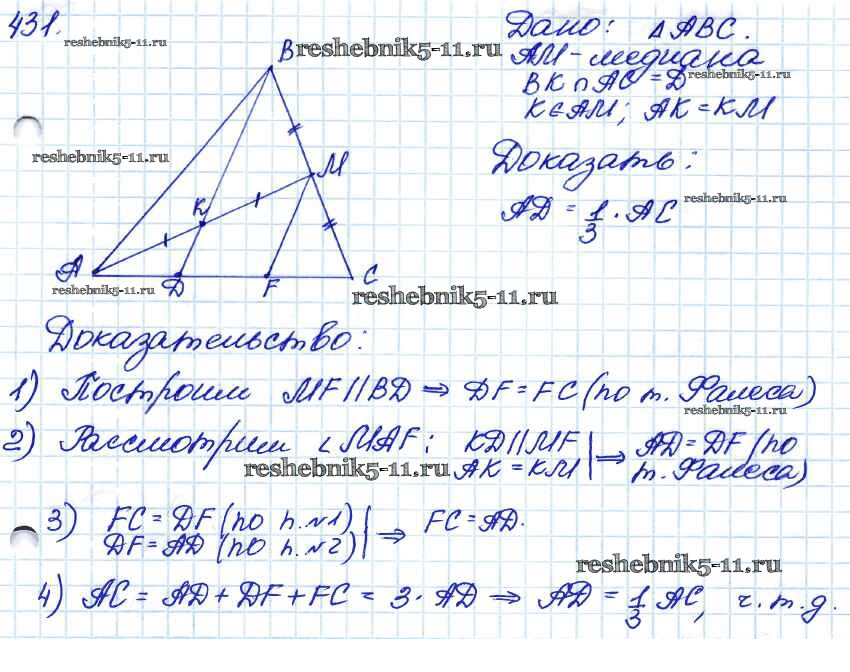 431.
reshebnik5-11.ru
B
reshebnik5-11.ru
Дано: △ABC.
AM-медиана
BK∩AC=D
reshebnik5-11.ru
K∈AM; AK=KM
reshebnik5-11.ru
M
Доказать:
K
AD = 1/3 · AC
reshebnik5-11.ru
A
D
F
C
reshebnik5-11.ru
reshebnik5-11.ru
Доказательство:
1) Построим MF||BD ⇒ DF=FC (по т. Фалеса)
reshebnik5-11.ru
2) Рассмотрим ∠MAF: KD||MF | ⇒ AD=DF (по
reshebnik5-11.ru
AK=KM | т. Фалеса)
3) FC=DF (по п.№1) | ⇒ FC=AD.
DF=AD (по п.№2) |
reshebnik5-11.ru
4) AC = AD+DF+FC = 3·AD ⇒ AD = 1/3 AC, ч.т.д.